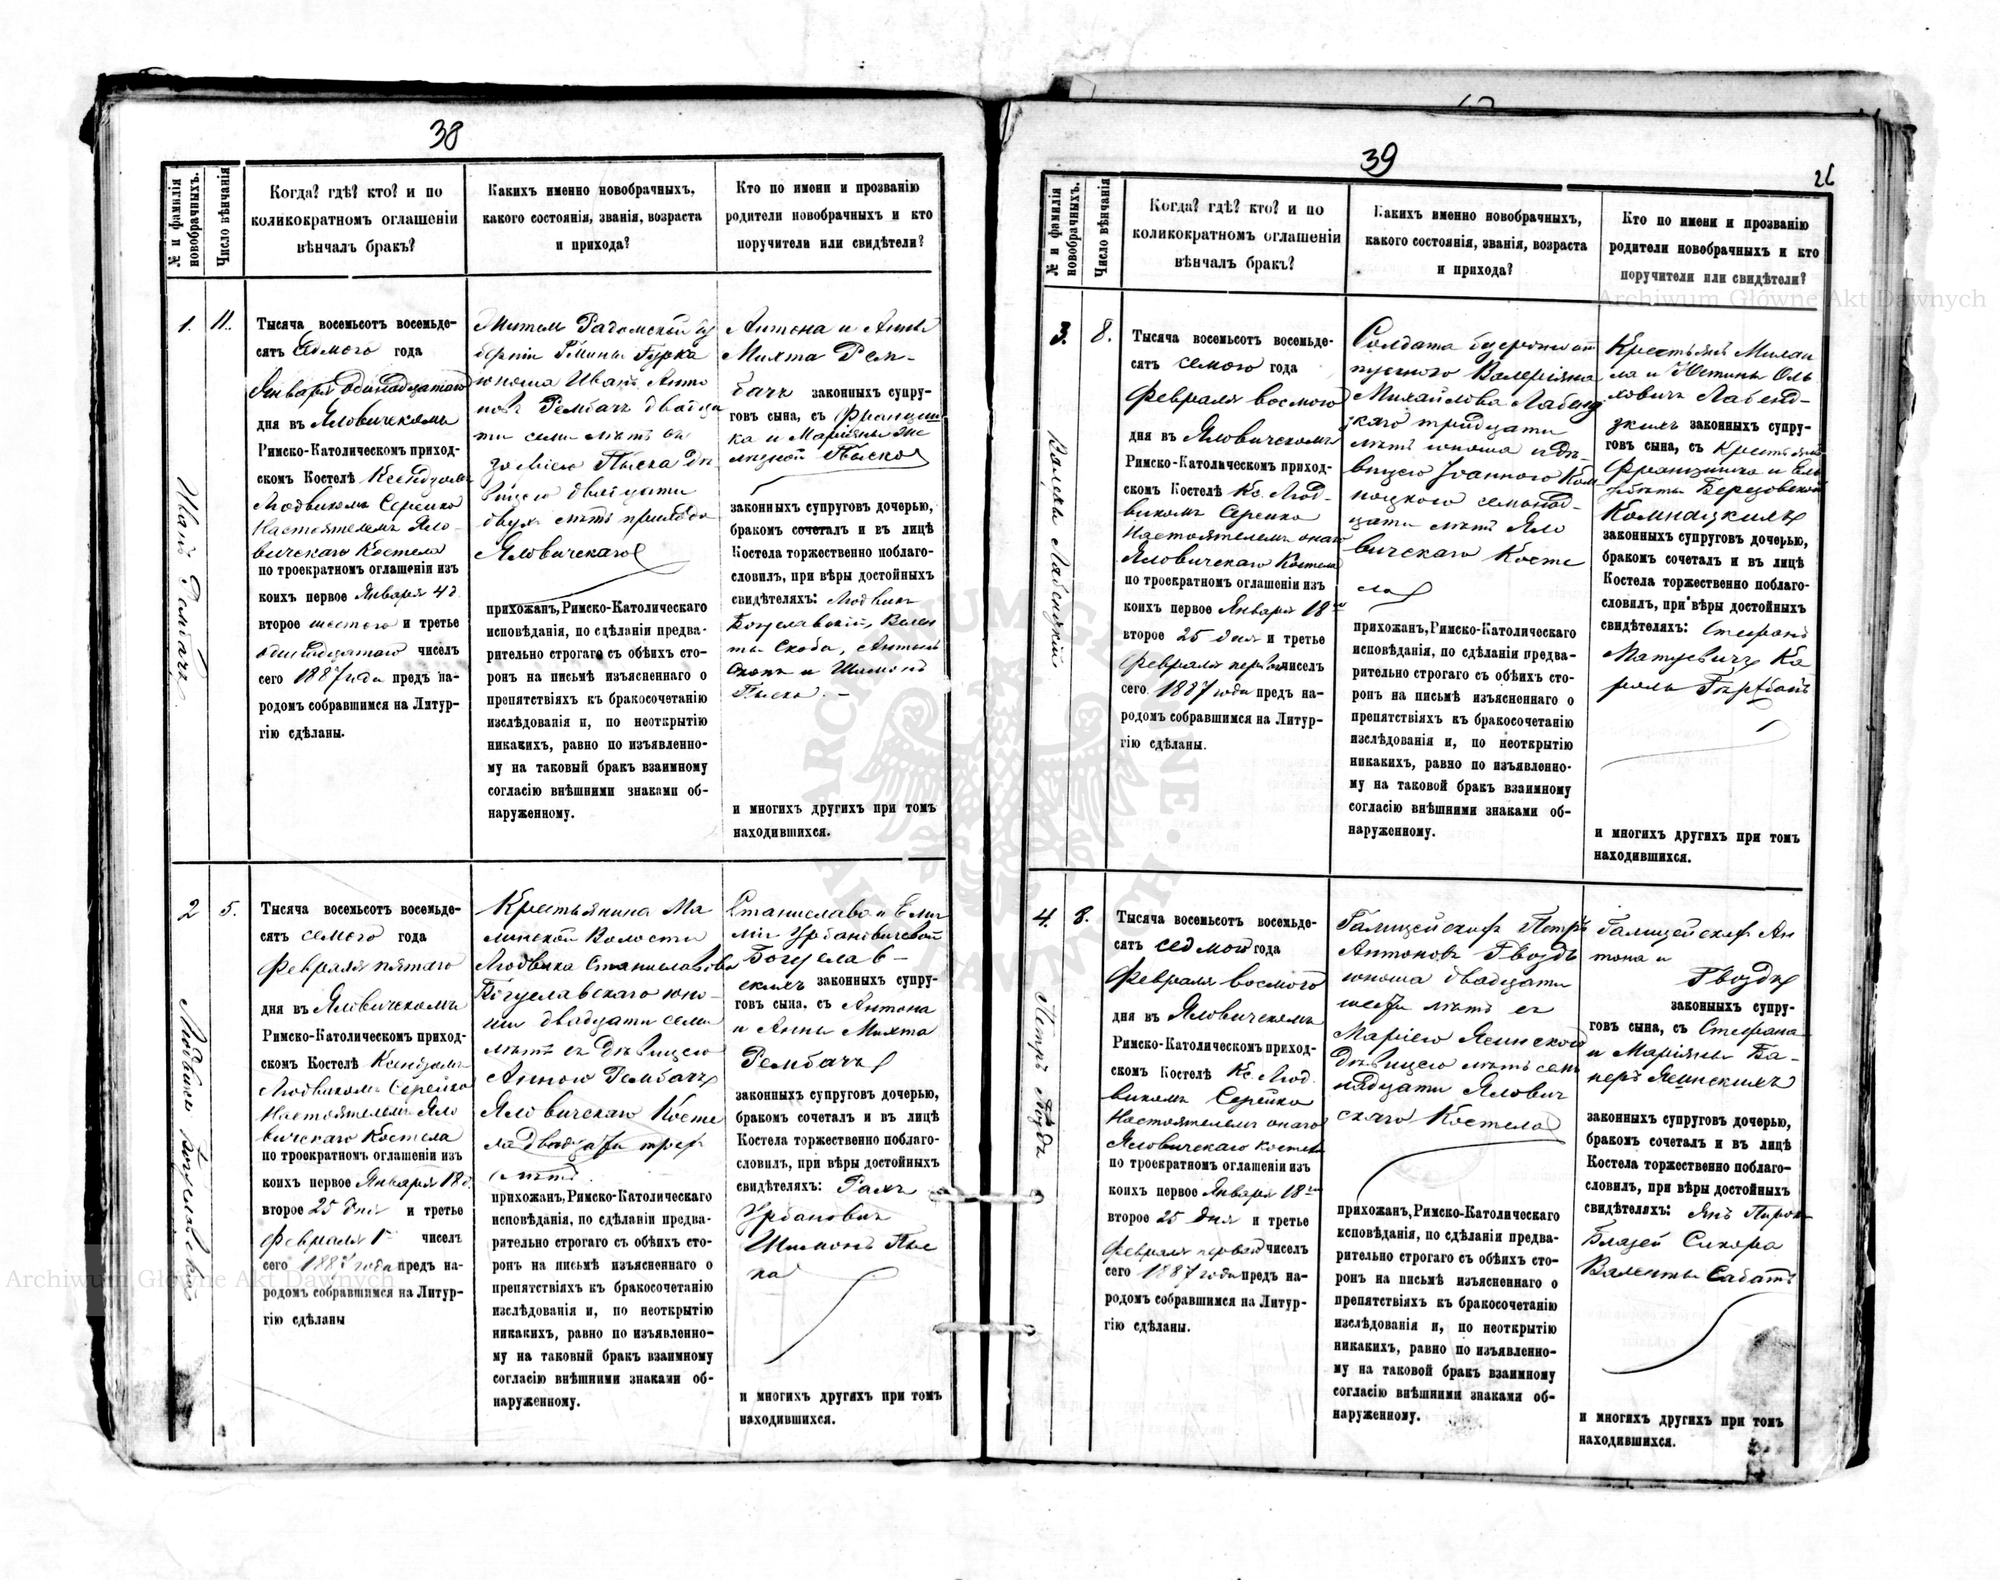 38
№ и фамилія новобрачныхъ.
Число вѣнчанія
Когда? гдѣ? кто? и по
коликократномъ оглашеніи
вѣнчалъ бракъ?
Какихъ именно новобрачныхъ,
какого состоянія, званія, возраста
и прихода?
Кто по имени и прозванію
родители новобрачныхъ и кто
поручители или свидѣтели?
1.
11.
Иванъ Рембачъ
Тысяча восемьсотъ восемьде-
сятъ седмого года
Января одинадцатого
дня въ Яловичскомъ
Римско-Католическомъ приход-
скомъ Костелѣ Ксендзомъ
Людвикомъ Серейко
Настоятелемъ Яло-
вичскаго Костела
по троекратномъ оглашеніи изъ
коихъ первое Января 4 д.
второе шестого и третье
одинадцатого чиселъ
сего 1887 года предъ на-
родомъ собравшимся на Литур-
гію сдѣланы.
Радомской гу
берніи Гмины Гурка
юноша Иванъ Анто
новъ Рембачъ двадца
ти семи лѣтъ
Пыска дѣ
вицею двадцати
двухъ лѣтъ прихода
Яловичскаго
прихожанъ, Римско-Католическаго
исповѣданія, по сдѣланіи предва-
рительно строгаго съ обѣихъ сто-
ронъ на письмѣ изъясненнаго о
препятствіяхъ къ бракосочетанію
изслѣдованія и, по неоткрытію
никакихъ, равно по изъявленно-
му на таковый бракъ взаимному
согласію внѣшними знаками об-
наруженному.
Антона и Анны
Михта Рем-
бачъ законныхъ супру-
говъ сына, съ Франциш
ка и Маріянны
Пыско
законныхъ супруговъ дочерью,
бракомъ сочеталъ и въ лицѣ
Костела торжественно поблаго-
словилъ, при вѣры достойныхъ
свидѣтеляхъ: Людвикъ
Богуславскій, Вален
ты Скоба, Антонъ
и Шимонъ
Пыска. -
и многихъ другихъ при томъ
находившихся.
2
5.
Людвикъ Богуславскій
Тысяча восемьсотъ восемьде-
сятъ семого года
Февраля пятаго
дня въ Яловичскомъ
Римско-Католическомъ приход-
скомъ Костелѣ Ксендзомъ
Людвикомъ Серейко
Настоятелемъ Яло
вичскаго Костела
по троекратномъ оглашеніи изъ
коихъ первое Января 18 д.
второе 25 дня и третье
Февраля 1 чиселъ
сего 1887 года предъ на-
родомъ собравшимся на Литур-
гію сдѣланы
Крестьянина Ма
линской Волости
Людвика Станиславова
Богуславскаго юно
ши двадцати семи
лѣтъ съ дѣвицею
Анною Рембачъ
Яловичскаго Косте
ла двадцати трехъ
лѣтъ.
прихожанъ, Римско-Католическаго
исповѣданія, по сдѣланіи предва-
рительно строгаго съ обѣихъ сто-
ронъ на письмѣ изъясненнаго о
препятствіяхъ къ бракосочетанію
изслѣдованія и, по неоткрытію
никакихъ, равно по изъявленно-
му на таковый бракъ взаимному
согласію внѣшними знаками об-
наруженному.
Станислава и Еми
ліи Урбановичевой
Богуслав-
скихъ законныхъ супру-
говъ сына. съ Антона
и Анны Михта
Рембачъ
законныхъ супруговъ дочерью,
бракомъ сочеталъ и въ лицѣ
Костела торжественно поблаго-
словилъ, при вѣры достойныхъ
свидѣтеляхъ:
Урбановичъ
Шимонъ Пыс
ка
и многихъ другихъ при томъ
находившихся.
39
26
№ и фамилія новобрачныхъ.
Число вѣнчанія
Когда? гдѣ? кто? и по
коликократномъ оглашеніи
вѣнчалъ бракъ?
Какихъ именно новобрачныхъ,
какого состоянія, званія, возраста
и прихода?
Кто по имени и прозванію
родители новобрачныхъ и кто
поручители или свидѣтели?
3.
8.
Лабендзкій
Тысяча восемьсотъ восемьде-
сятъ семого года
Февраля восмого
дня въ Яловичскомъ
Римско-Католическомъ приход-
скомъ Костелѣ Кс. Люд-
викомъ Серейко
Настоятелемъ онаго
Яловичскаго Костела
по троекратномъ оглашеніи изъ
коихъ первое Января 18
второе 25 дня и третье
Февраля первого чиселъ
сего 1887 года предъ на-
родомъ собравшимся на Литур-
гію сдѣланы.
Солдата безсрочно от
пускного Валеріяна
Михайлова Лабенд
зкаго тридцати
лѣтъ юноша и дѣ-
вицею Іоанною Ком
ноцкого семонад-
цати лѣтъ Яло
вичскаго Косте
ла
прихожанъ, Римско-Католическаго
исповѣданія, по сдѣланіи предва-
рительно строгаго съ обѣихъ сто-
ронъ на письмѣ изъясненнаго о
препятствіяхъ къ бракосочетанію
изслѣдованія и, по неоткрытію
никакихъ, равно по изъявленно-
му на таковой бракъ взаимному
согласію внѣшними знаками об-
наруженному.
Крестьянъ Михаи
ла и Юстины Оль
ховичъ Лабенд-
зкихъ законныхъ супру-
говъ сына, съ Крестьянъ
Францишка и Ель
жбеты Березовской
Комнацкихъ
законныхъ супруговъ дочерью,
бракомъ сочеталъ и въ лицѣ
Костела торжественно поблаго-
словилъ, при вѣры достойныхъ
свидѣтеляхъ: Стефанъ
Матусевичъ Ка
роль
и многихъ другихъ при томъ
находившихся.
4.
8.
Петръ Гвоздь
Тысяча восемьсотъ восемьде-
сятъ седмого года
Февраля восмого
дня въ Яловичскомъ
Римско-Католическомъ приход-
скомъ Костелѣ Кс. Люд
викомъ Серейко
Настоятелемъ онаго
Яловичскаго костела
по троекратномъ оглашеніи изъ
коихъ первое Января 18
второе 25 дня и третье
Февраля первого чиселъ
сего 1887 года предъ на-
родомъ собравшимся на Литур-
гію сдѣланы.
Петръ
Антоновъ Гвоздь
юноша двадцати
шести лѣтъ съ
Маріею Ясинской
дѣвицею лѣтъ сем
надцати Ялович
скаго Костела
прихожанъ, Римско-Католическаго
исповѣданія, по сдѣланіи предва-
рительно строгаго съ обѣихъ сто-
ронъ на письмѣ изъясненнаго о
препятствіяхъ къ бракосочетанію
изслѣдованія и, по неоткрытію
никакихъ, равно по изъявленно-
му на таковой бракъ взаимному
согласію внѣшними знаками об-
наруженному.
Ан
тона и
Гвоздь
законныхъ супру-
говъ сына, съ Стефана
и Маріянны Ба-
неръ Ясинскихъ
законныхъ супруговъ дочерью,
бракомъ сочеталъ и въ лицѣ
Костела торжественно поблаго-
словилъ, при вѣры достойныхъ
свидѣтеляхъ: Янъ
Блазей Сикора
Валенты Сабатъ
и многихъ другихъ при томъ
находившихся.
Archiwum Główne Akt Dawnych
Archiwum Główne Akt Dawnych
ARCHIWUM GŁÓWNE AKT DAWNYCH